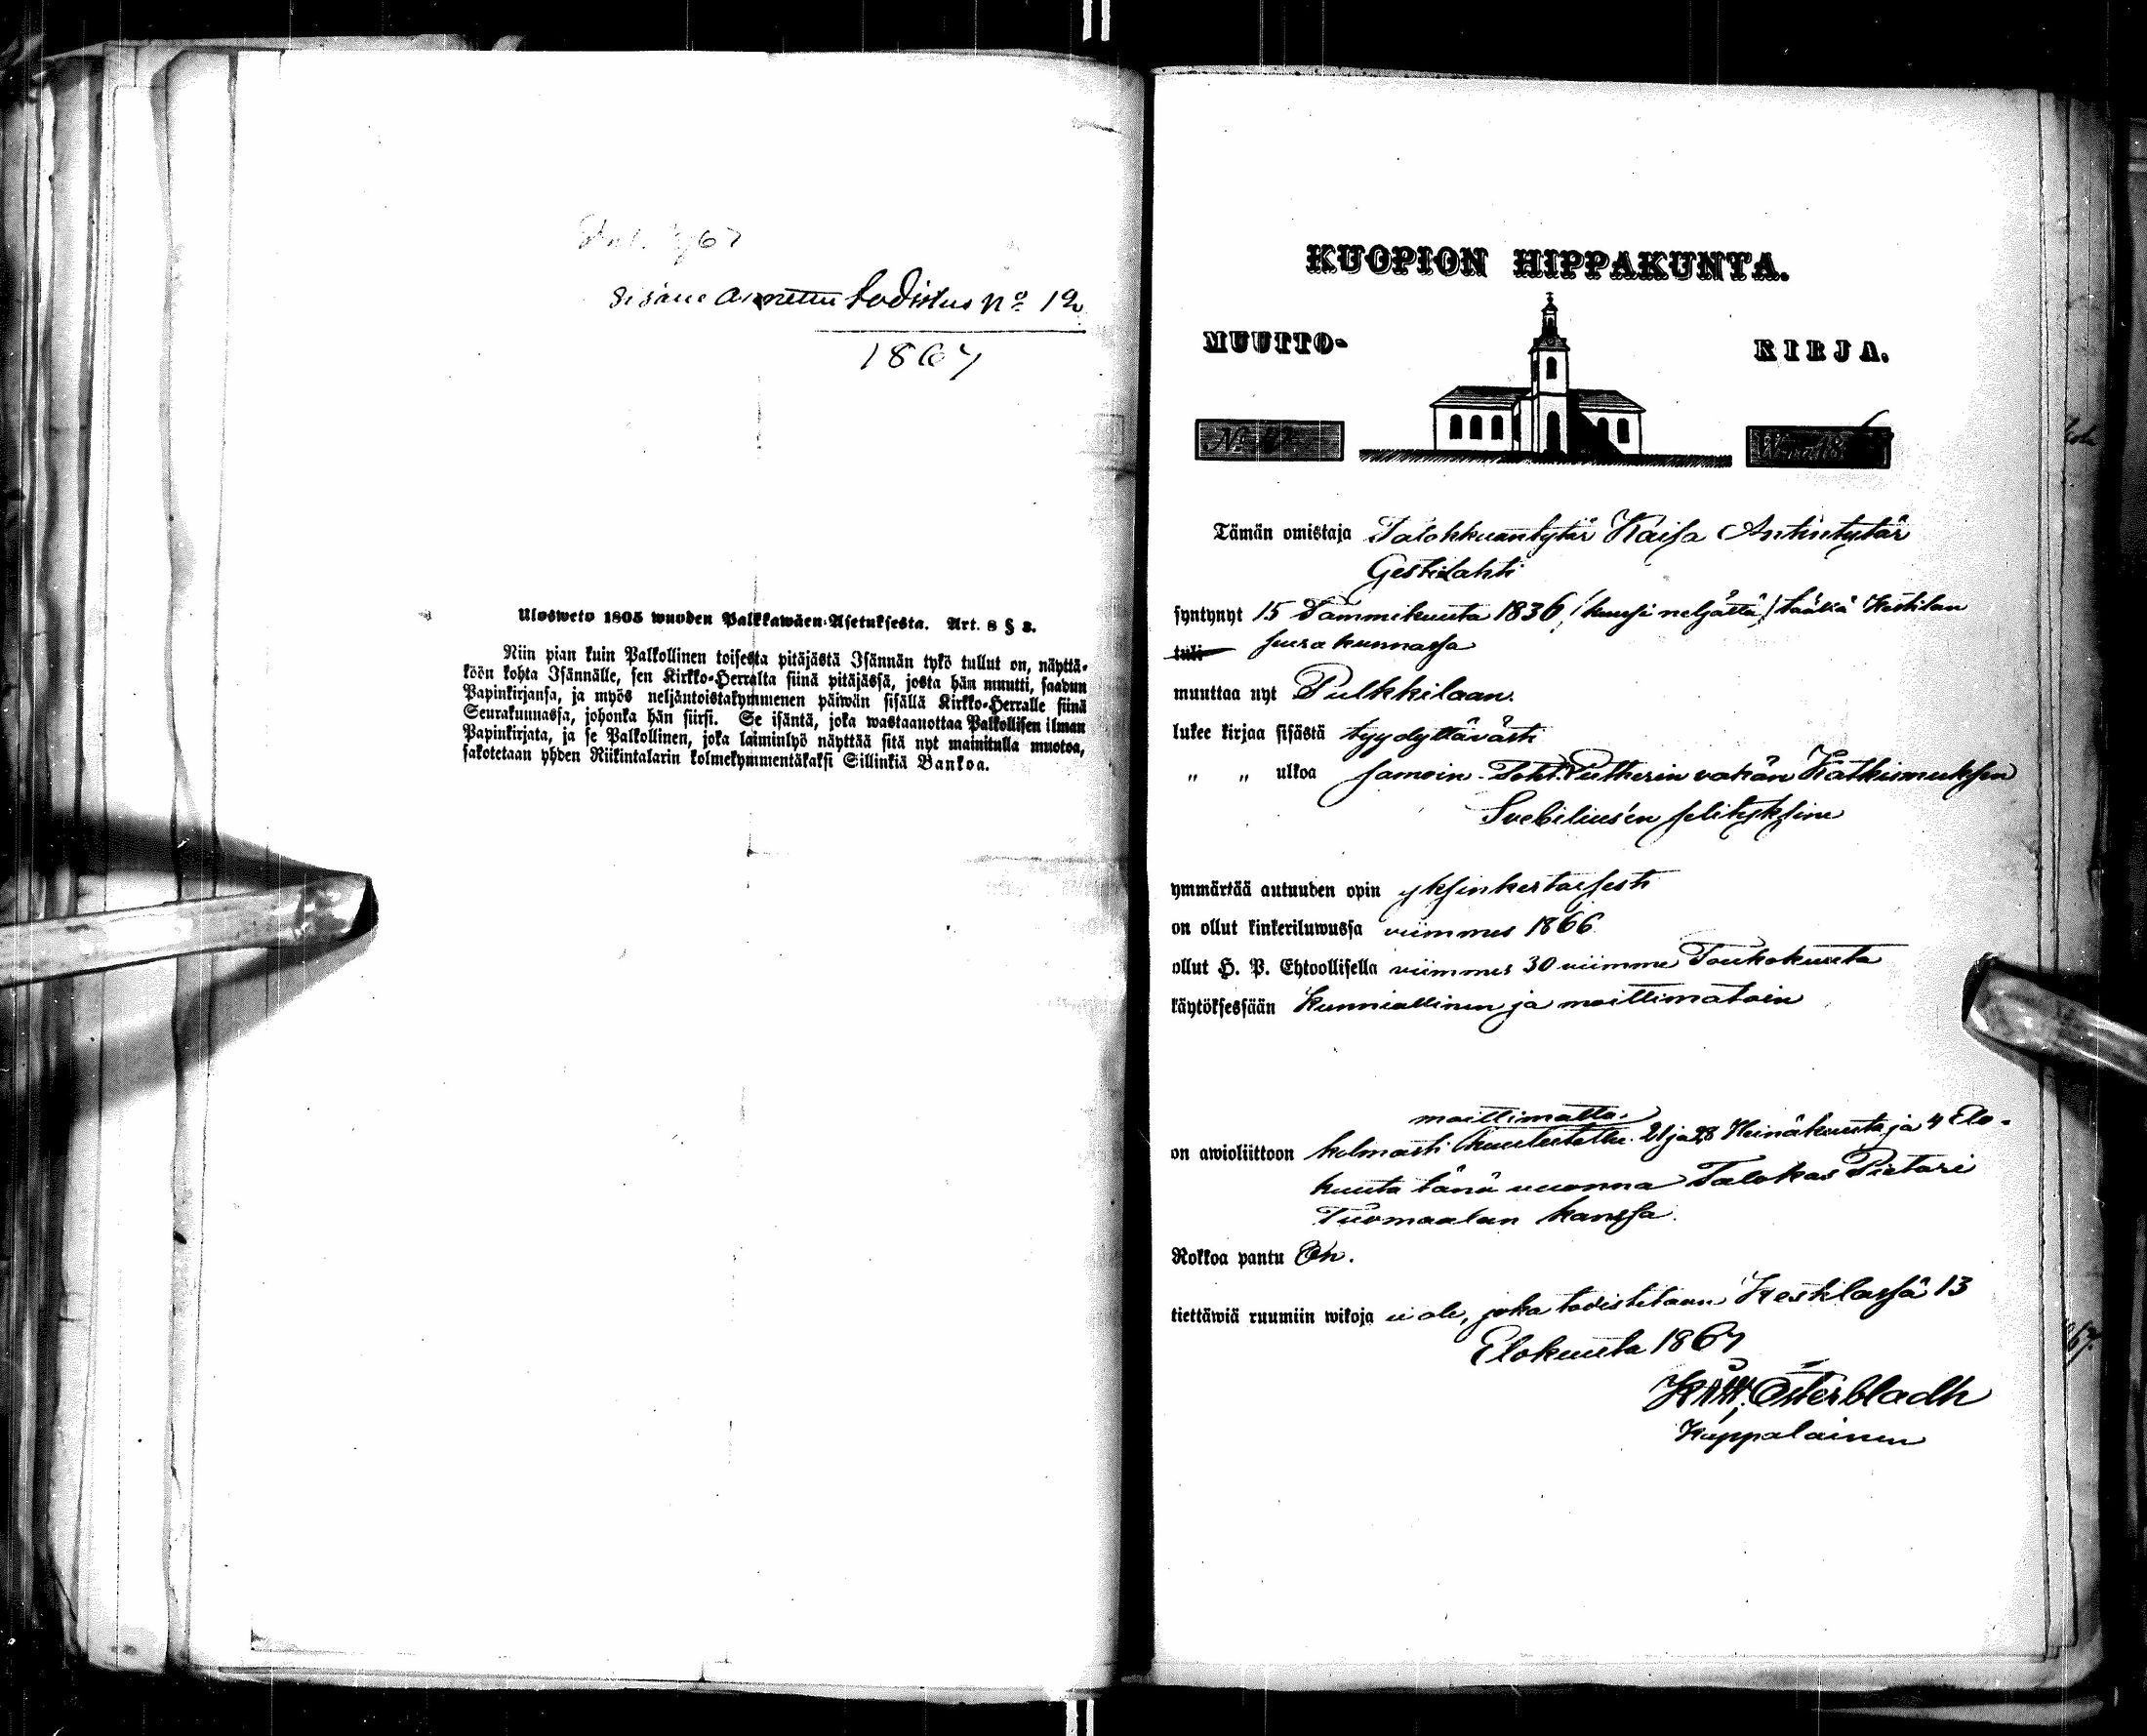 Sisään annettu todistus No 12
1867
Ulosweto 1805 wuoden Palkkawäen-Asetuksesta. Art. 8 § 3.
Niin pian kuin Palkollinen toisesta pitäjästä Isännän tykö tullut on, näyttä-
köön kohta Isännälle, sen Kirkko-Herralta siinä pitäjässä, josta hän muutti, saadun
Papinkirjansa, ja myös neljäntoistakymmenen päiwän sisällä Kirkko-Herralle siinä
Seurakunnassa, johonka hän siirsi. Se isäntä, joka wastaanottaa Palkollisen ilman
Papinkirjata, ja se Palkollinen, joka laiminlyö näyttää sitä nyt mainitulla muotoa,
sakotetaan yhden Riikintalarin kolmekymmentäkaksi Sillinkiä Bankoa.
KUOPION HIPPAKUNTA.
MUUTTO- KIRJA.
Tämän omistaja Talokkaantytär Kaisa Antintytär
Gestilahti
syntynyt 15 Tammikuuta 1836, (kuusi neljättä) täällä Kestilan
tuli seurakunnassa
muuttaa nyt Pulkkilaan.
lukee kirjaa sisästä tyydyttävästi
„ „ ulkoa samoin Toht. Lutherin vähän Katkismuksen
Svebiliusen selityksine
ymmärtää autuuden opin yksinkertaisesti
on ollut kinkeriluwussa viimmes 1866
ollut H. P. Ehtoollisella viimmes 30 viimme Toukokuuta
käytöksessään kunniallinen ja moittimatoin
moittimatta
on awioliittoon kolmasti kuulutettu 21 ja 28 Heinäkuuta ja 4 Elo-
kuuta tänä vuonna Talokas Pietari
Tuomaalan kanssa.
Rokkoa pantu On.
tiettäwiä ruumiin wikoja ei ole, joka todistetaan Kestilassä 13
Elokuuta 1867
Österbladh
Kappalainen